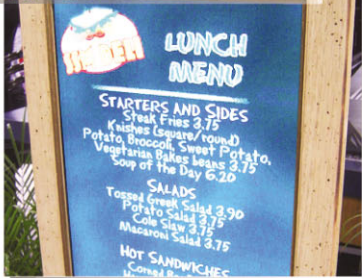 LUNCH
MENU
STARTERS AND SIDES
Steak Fries 3.75
Knishes (square/round)
Potato, Broccoli, Sweet Potato,
Vegetarian Bakes beans 3.75
Soup of the Day 6.20
SALADS
Tossed Greek Salad 3.90
Potato Salad 3.75
Cole Slaw 3.75
Macaroni Salad 3.75
HOT SANDWICHES
Corned